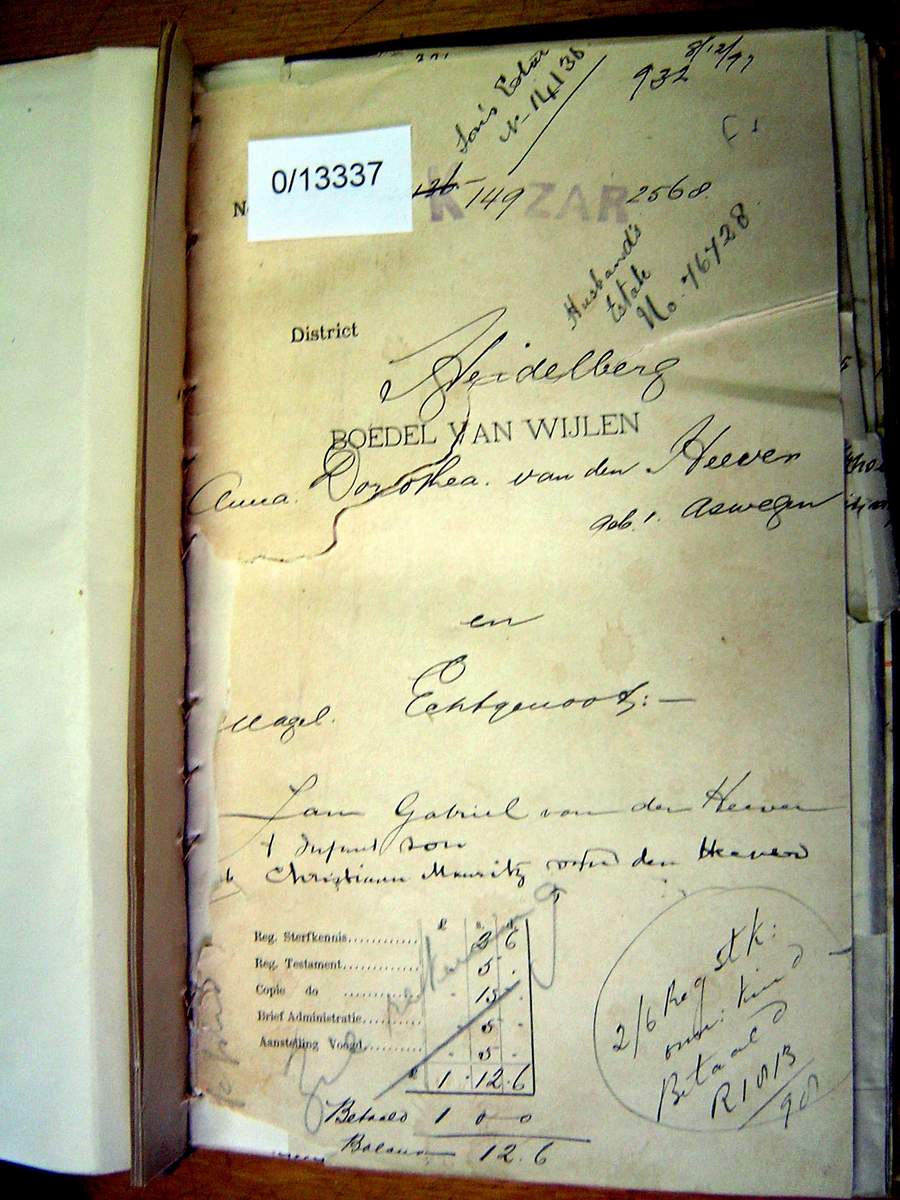 8/12/97
932
Estate
0/13337
149
K ZAR
2568
Husband's
Estate
No. 76728
District
Heidelberg
BOEDEL VAN WIJLEN
Anna Dorothea van den Heever
geb. v. Aswegen
en
nagel. Echtgenoot:—
Gabriel van den Heever
+ Infant son
Christiaan Mauritz van den Heever
£ s. d.
Reg. Sterfkennis............ 2 6
Reg. Testament............ 5 .
Copie do ............ 15 .
Brief Administratie............ 5 .
Aanstelling Voogd............ 5 .
£ 1 . 12 . 6
Betaald 1 0 0
Balans 12.6
2/6 Reg stk:
kind
Betaald